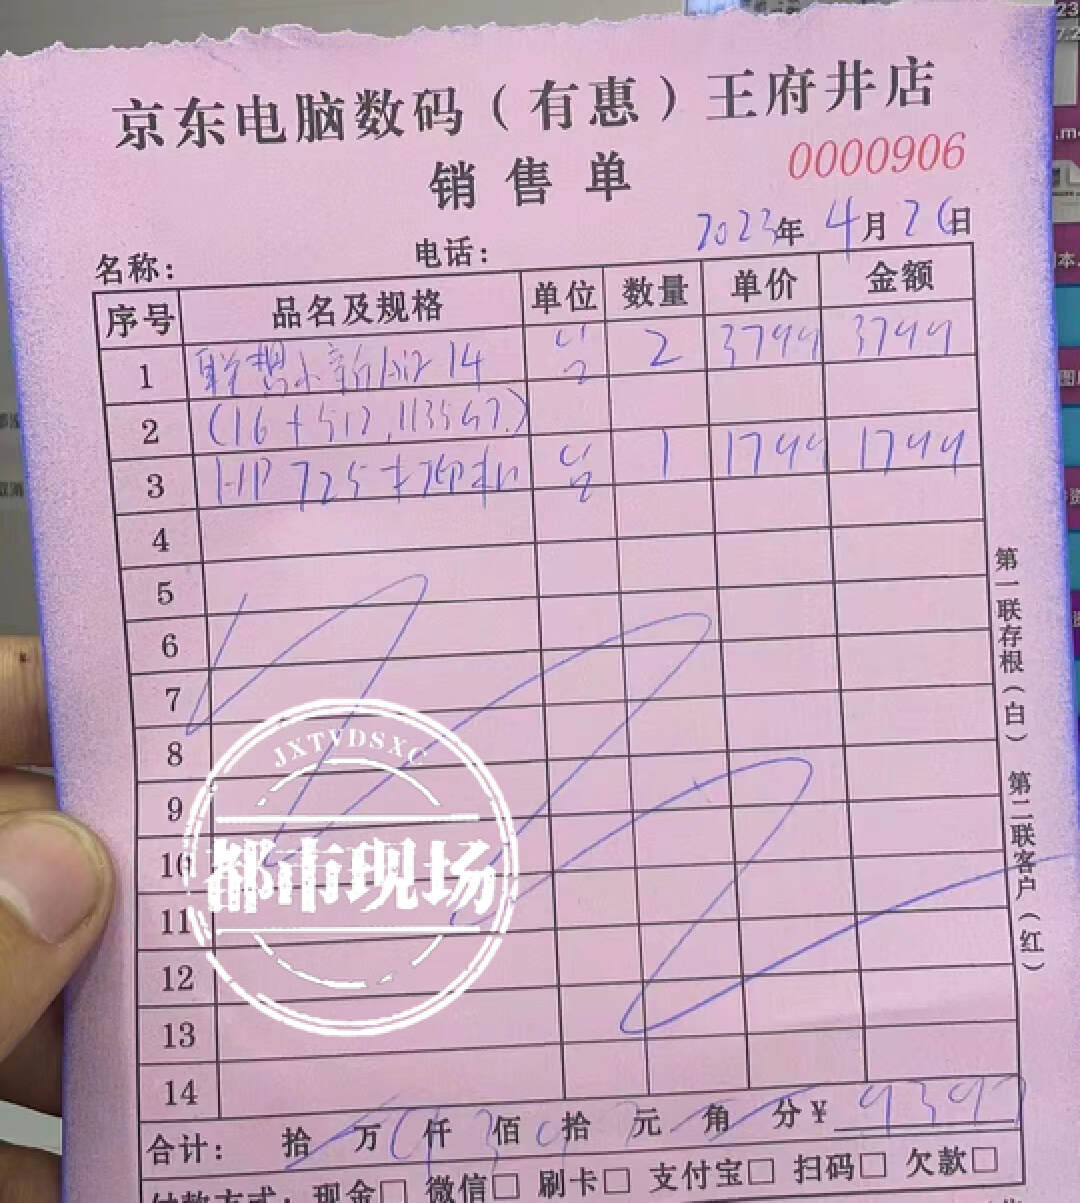 京东电脑数码（有惠）王府井店
销售单
0000906
2023年 4月26日
名称： 电话：
序号 品名及规格 单位 数量 单价 金额
1 联想小新Air14 台 2 3799 3799
2 (16+512,1135G7.)
3 HP 725打印机 台 1 1799 1799
4
5
6
7
8
9
10
11
12
13
14
合计： 拾 万 仟 佰 拾 元 角 分 ¥ 9397
现金□ 微信□ 刷卡□ 支付宝□ 扫码□ 欠款□
第一联存根（白） 第二联客户（红）
JXTVDSXC
都市现场